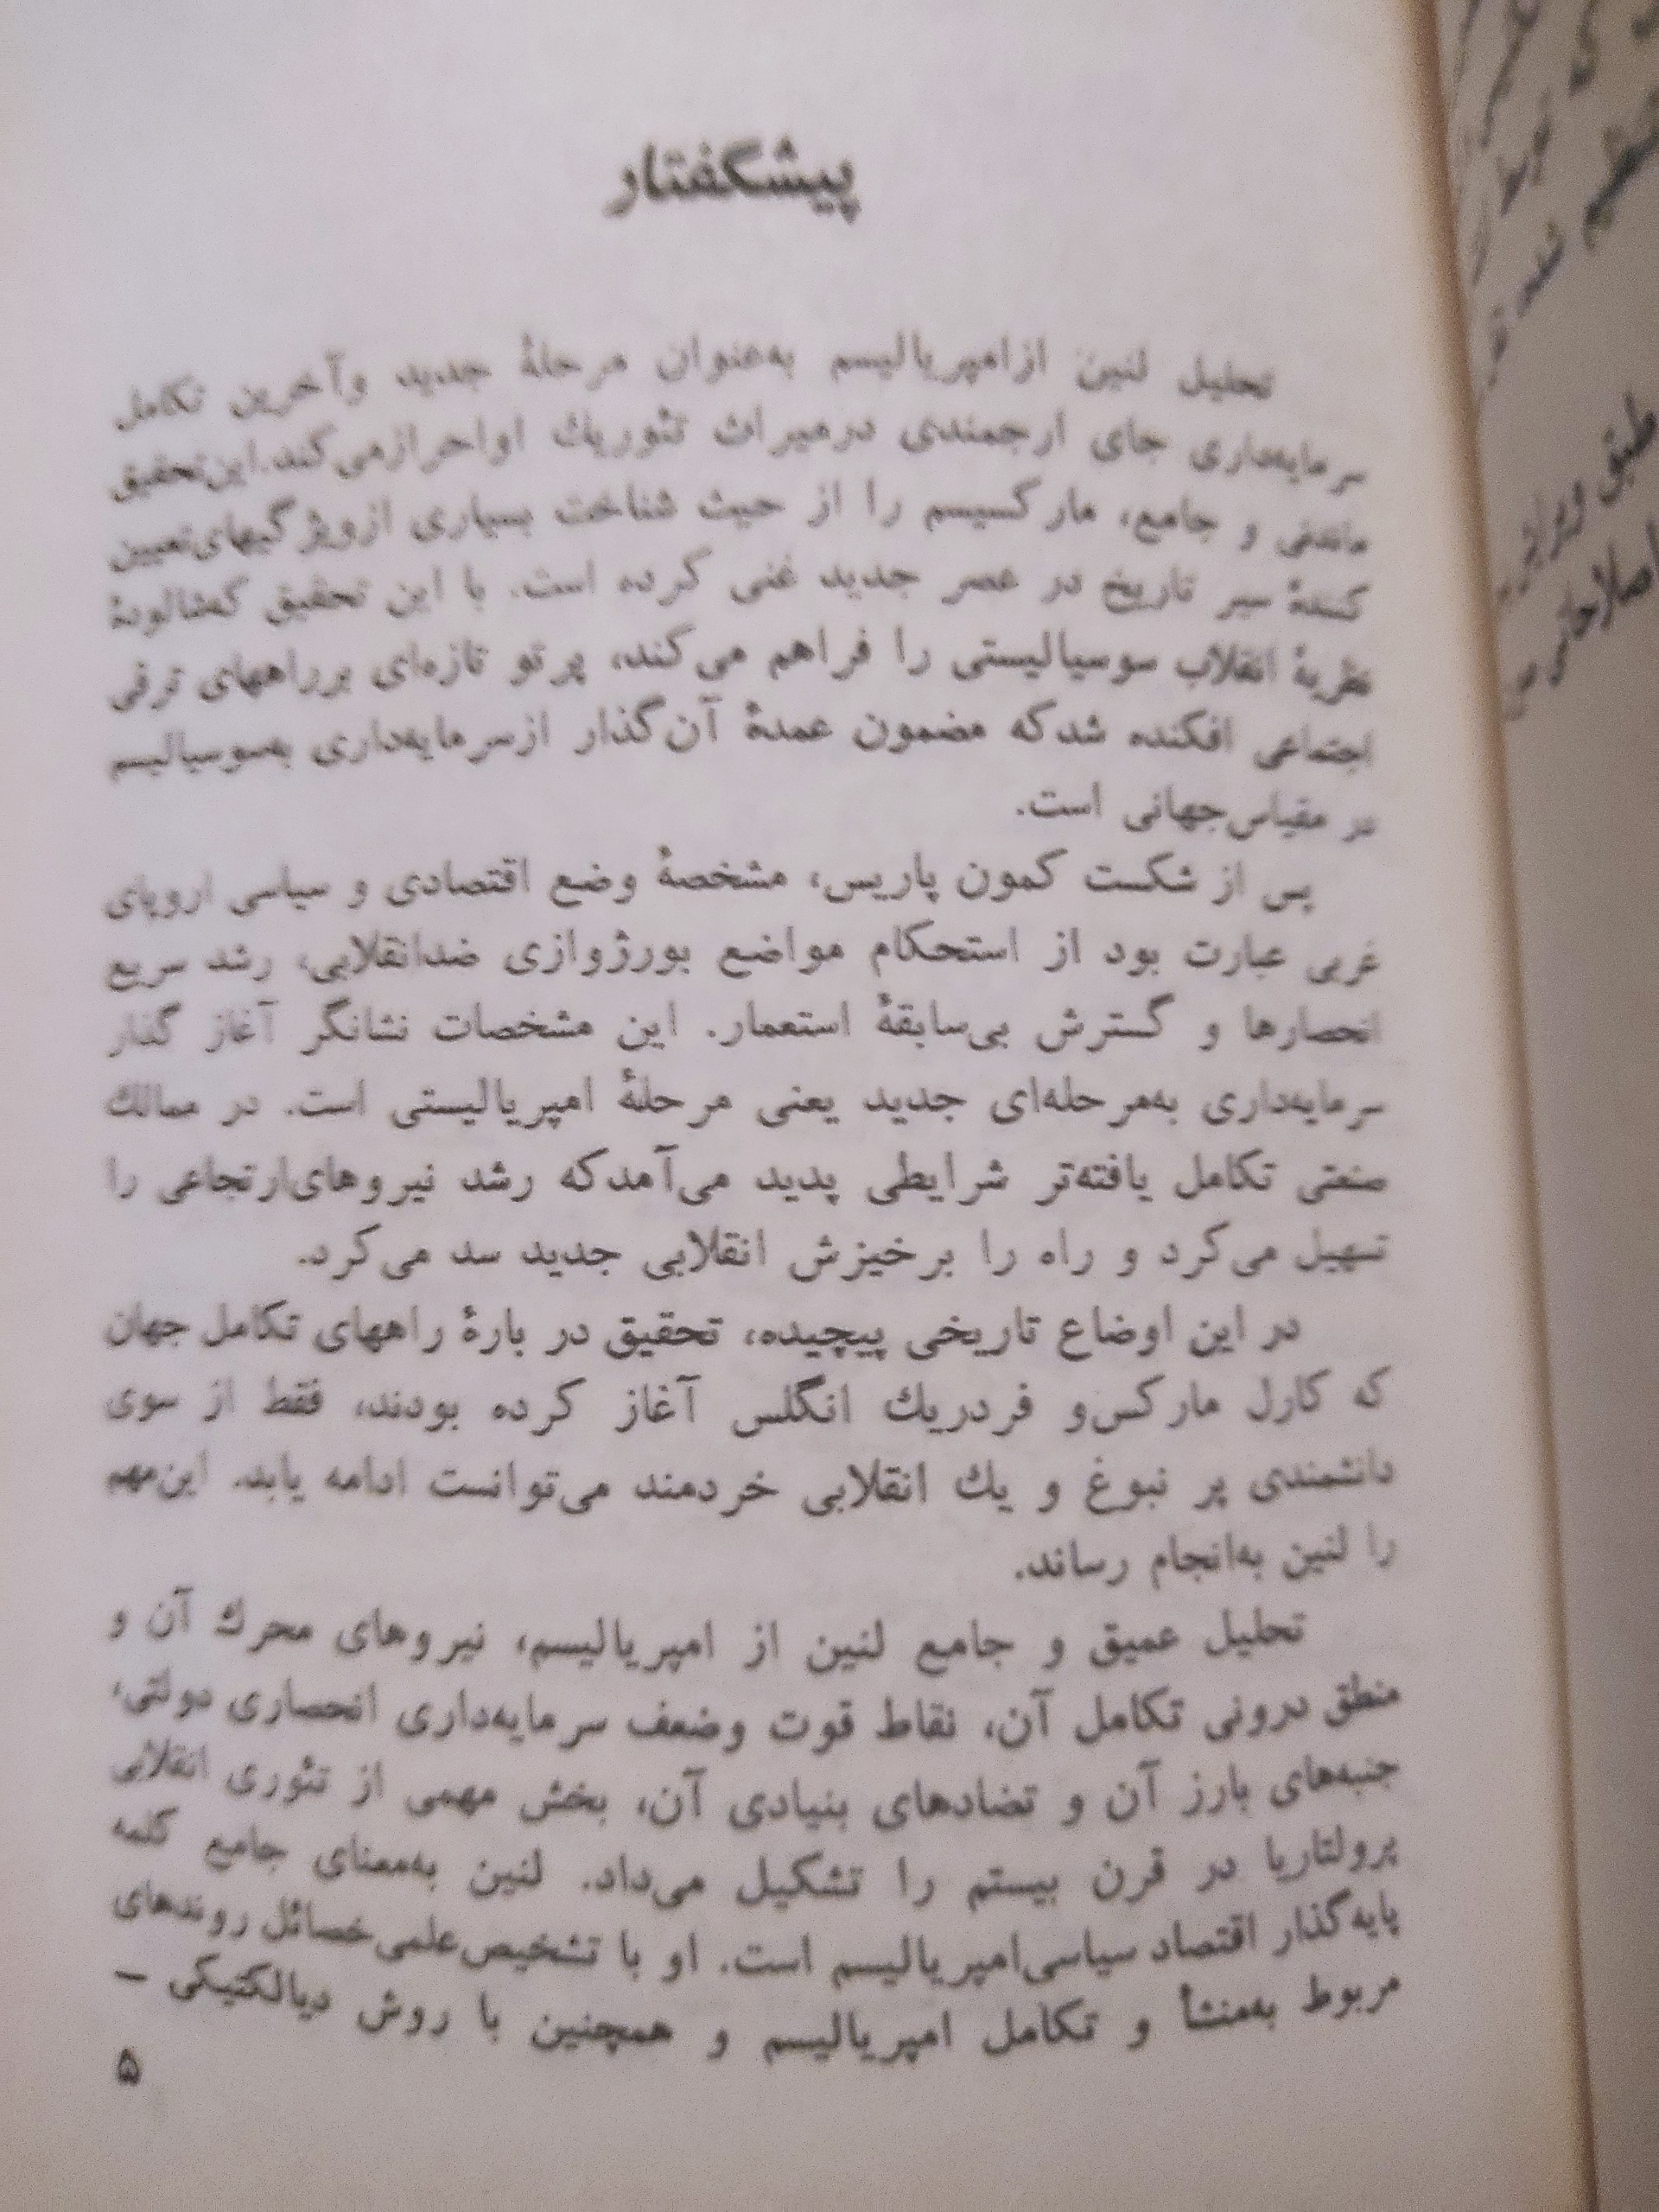 پیشگفتار
تحلیل لنین از امپریالیسم به‌عنوان مرحلهٔ جدید و آخرین تکامل
سرمایه‌داری جای ارجمندی درمیراث تئوریك او احراز می‌کند. این تحقیق
ماندنی و جامع، مارکسیسم را از حیث شناخت بسیاری از ویژگیهای تعیین
کنندهٔ سیر تاریخ در عصر جدید غنی کرده است. با این تحقیق که شالودهٔ
نظریهٔ انقلاب سوسیالیستی را فراهم می‌کند، پرتو تازه‌ای بر راههای ترقی
اجتماعی افکنده شد که مضمون عمدهٔ آن گذار از سرمایه‌داری به‌سوسیالیسم
در مقیاس جهانی است.
پس از شکست کمون پاریس، مشخصهٔ وضع اقتصادی و سیاسی اروپای
غربی عبارت بود از استحکام مواضع بورژوازی ضدانقلابی، رشد سریع
انحصارها و گسترش بی‌سابقهٔ استعمار. این مشخصات نشانگر آغاز گذار
سرمایه‌داری به‌مرحله‌ای جدید یعنی مرحلهٔ امپریالیستی است. در ممالك
صنعتی تکامل یافته‌تر شرایطی پدید می‌آمد که رشد نیروهای ارتجاعی را
تسهیل می‌کرد و راه را برخیزش انقلابی جدید سد می‌کرد.
در این اوضاع تاریخی پیچیده، تحقیق در بارهٔ راههای تکامل جهان
که کارل مارکس و فردریك انگلس آغاز کرده بودند، فقط از سوی
دانشمندی پر نبوغ و یك انقلابی خردمند می‌توانست ادامه یابد. این مهم
را لنین به‌انجام رساند.
تحلیل عمیق و جامع لنین از امپریالیسم، نیروهای محرك آن و
منطق درونی تکامل آن، نقاط قوت و ضعف سرمایه‌داری انحصاری دولتی،
جنبه‌های بارز آن و تضادهای بنیادی آن، بخش مهمی از تئوری انقلابی
پرولتاریا در قرن بیستم را تشکیل می‌داد. لنین به‌معنای جامع کلمه
پایه‌گذار اقتصاد سیاسی امپریالیسم است. او با تشخیص علمی خصائل روندهای
مربوط به‌منشأ و تکامل امپریالیسم و همچنین با روش دیالکتیکی –
۵
طبق